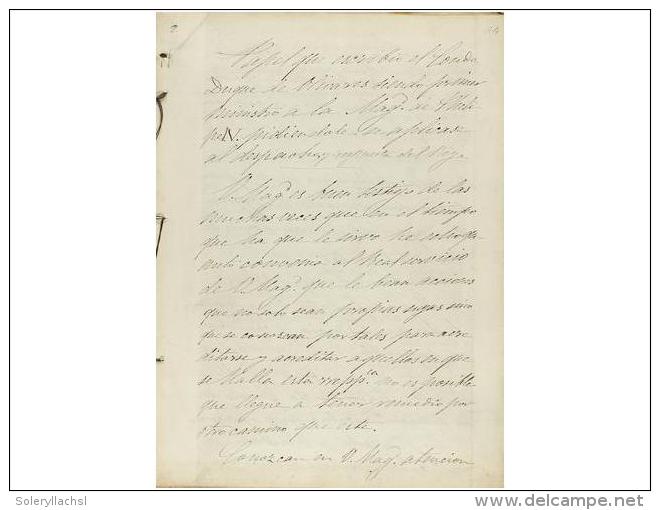 2
Papel que escribio el Conde
Duque de Olivares siendo primer
ministro a la Mag.d de Pheli
pe IV. pidiendole se aplicase
al despacho, y
V. Mag.d es buen testigo de las
muchas veces que en el tiempo
que ha que le sirvo he
quanto conviene al Real servicio
de V. Mag.d que le bean acciones
que no solo sean propias suyas sino
que se conozcan por tales para acre
ditarse y acreditar aquellas en que
se halla esta no es posible
que llegue a tener remedio por
otro camino que este.
Conozcan en V. Mag.d atencion
Soleryllachsl
delcampe.net